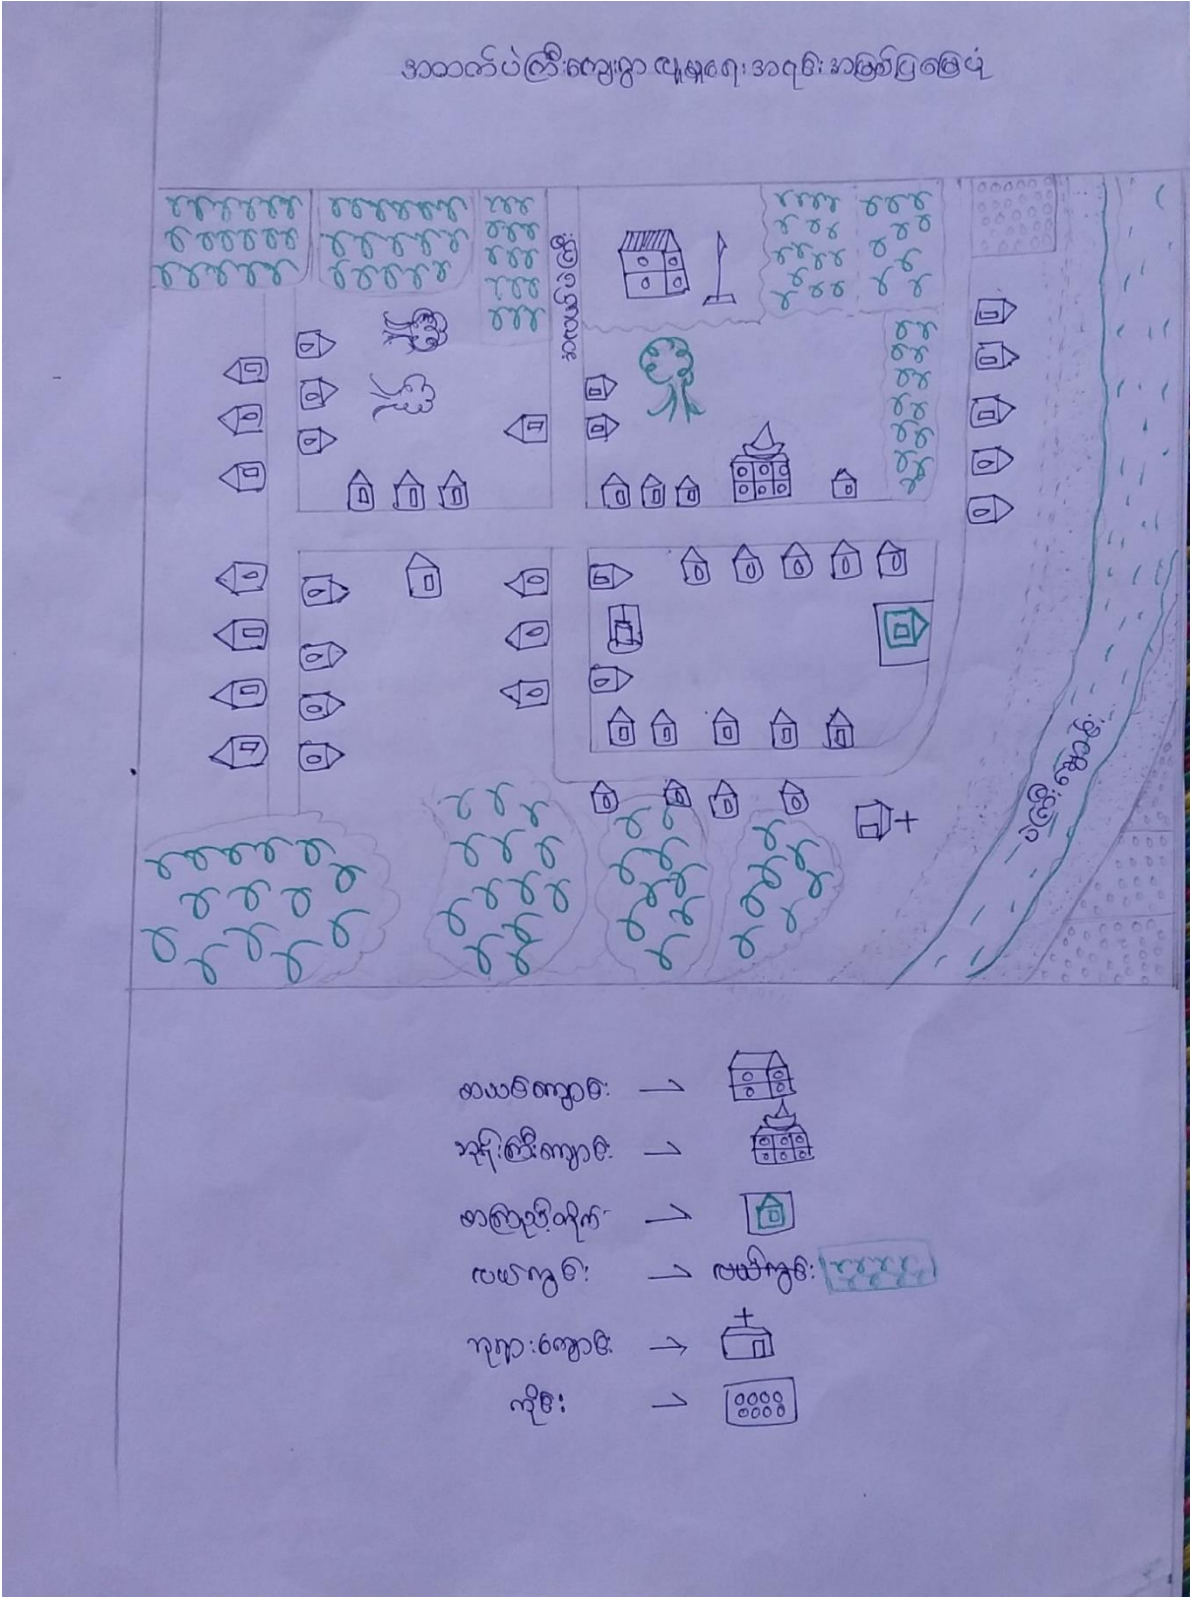 အထက်ပဲကြီးကျေးရွာ လူမှုရေး အရင်းအမြစ်ပြမြေပုံ
စာသင်ကျောင်း →
ဘုန်းကြီးကျောင်း →
စာကြည့်တိုက် →
လယ်ကွင်း → လယ်ကွင်း
ဘုရားကျောင်း →
ကိုင်း →